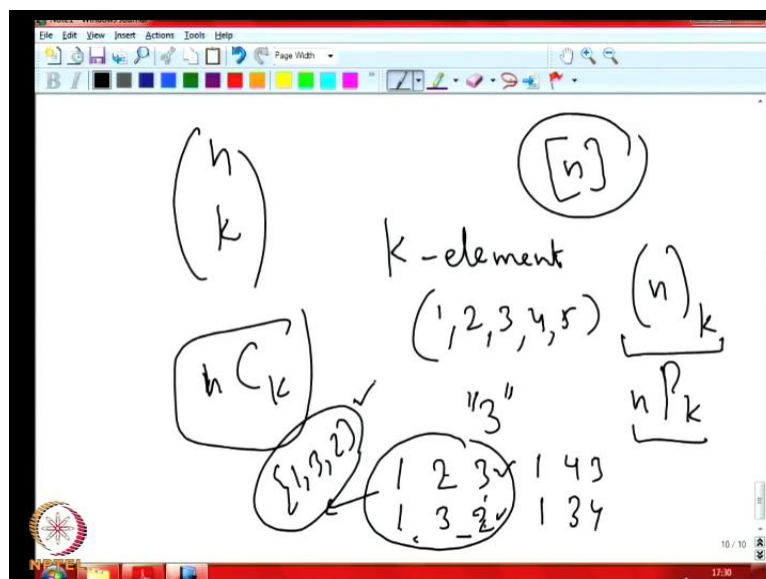 Note1 - Windows Journal
File Edit View Insert Actions Tools Help
Page Width
B I
(n k)
[n]
k-element
(1,2,3,4,5)
(n)k
nCk
"3"
nPk
{1,3,2}
1 2 3 1 4 3
1 3 2 1 3 4
10 / 10
NPTEL
17:30